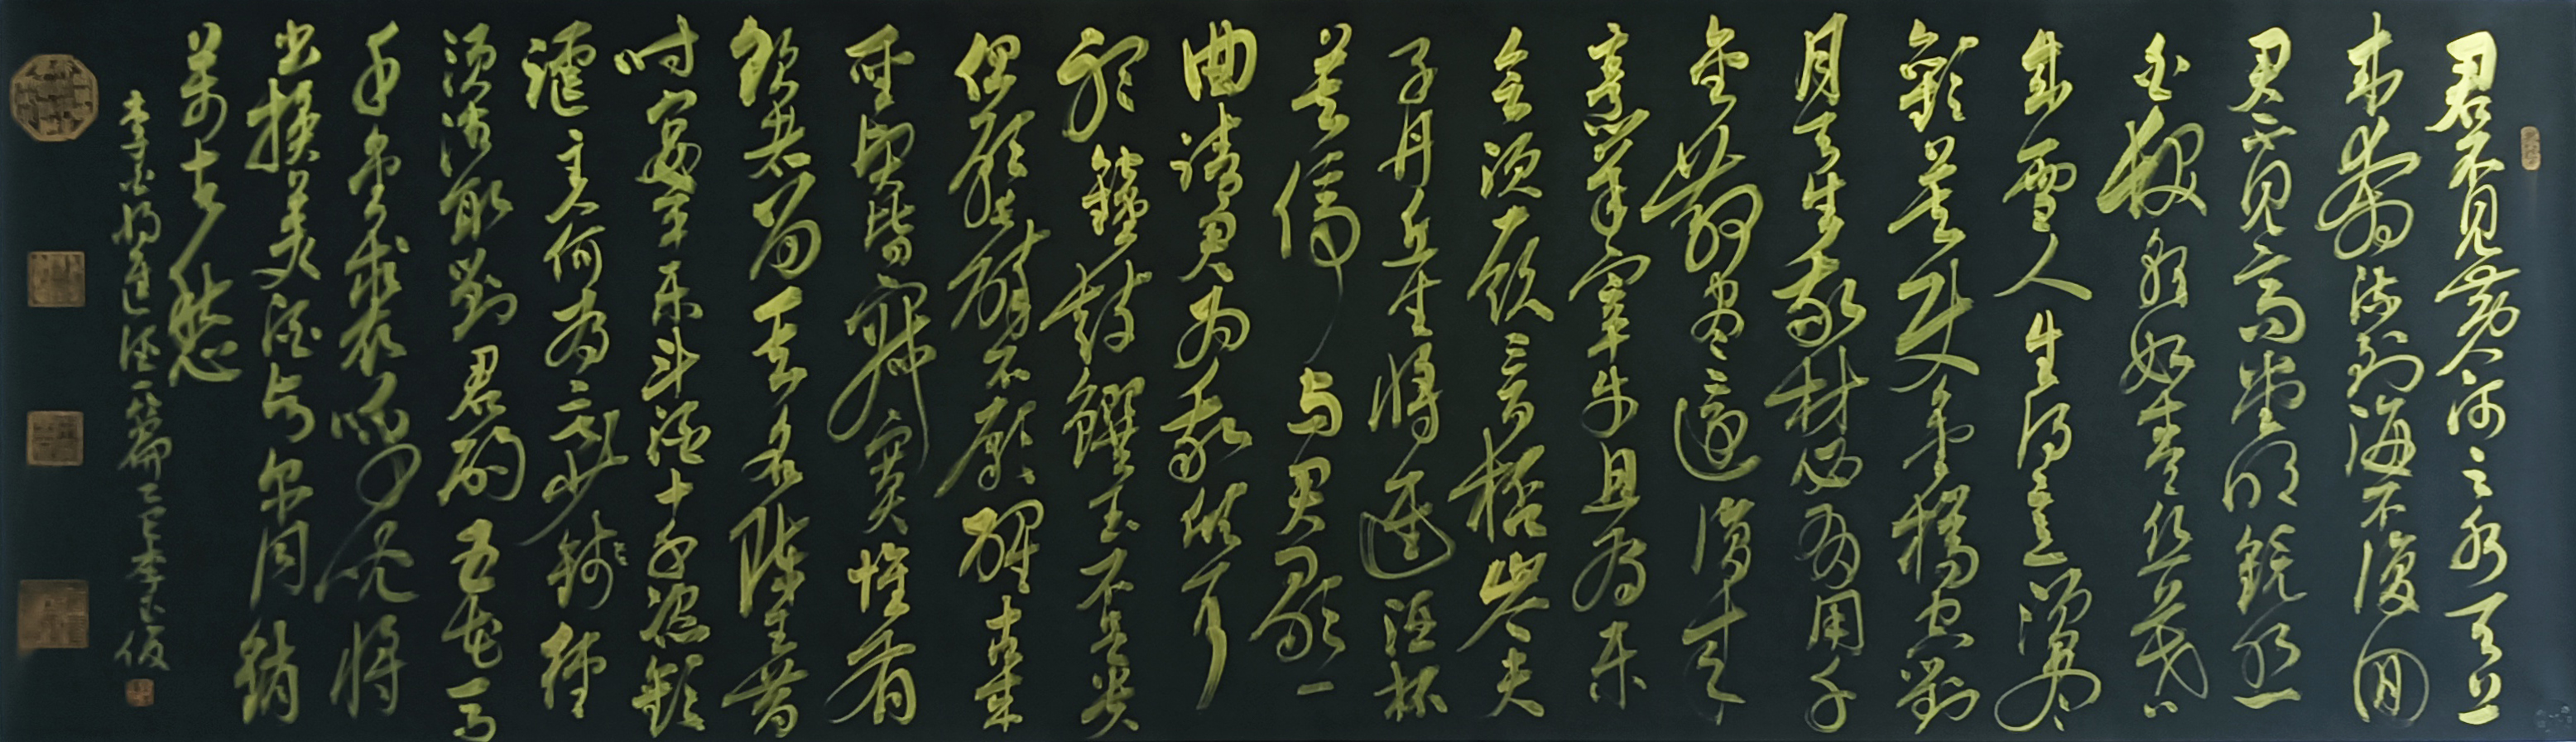 君不見黄河之水天上
来奔流到海不復回
君不見高堂明鏡悲
白髮朝如青丝暮
成雪人生得意須尽
歡莫使金樽空對
月天生我材必有用千
金散尽還復来
烹羊宰牛且为乐
會须一饮三百杯岑夫
子丹丘生將進酒杯
莫停与君歌一
曲请君为我倾耳
听鐘鼓饌玉不足贵
但願长醉不願醒古来
聖賢皆寂寞惟有
飲者留其名陈王昔
时宴平乐斗酒十千恣歡
謔主人何为言少錢徑
须沽取對君酌五花马
千金裘呼儿將
出换美酒与尔同銷
萬古愁
李白將進酒一篇乙巳李玉